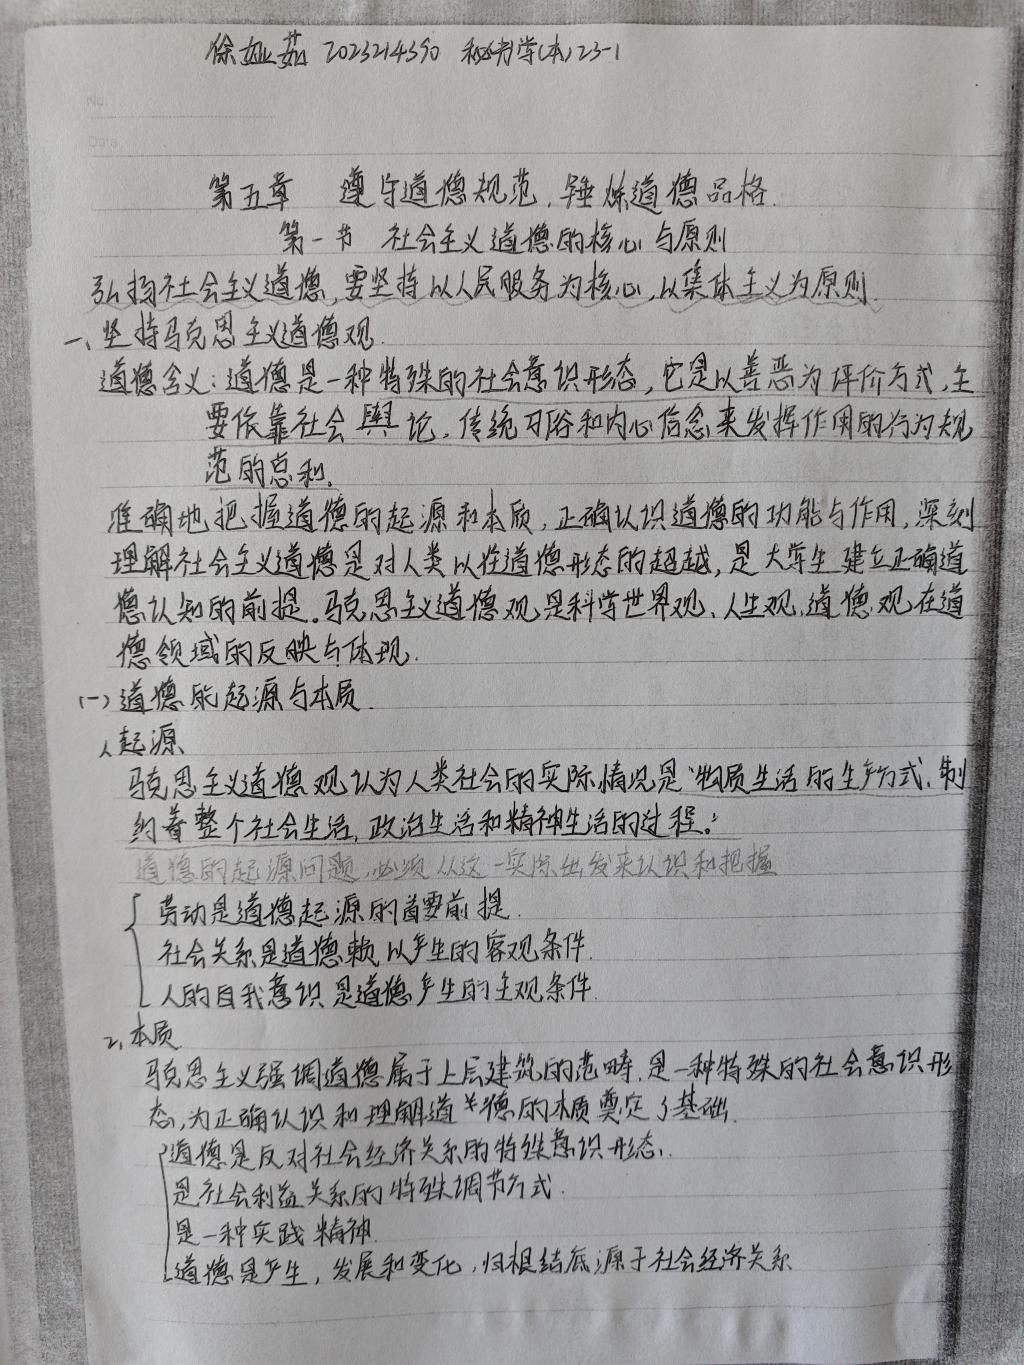 徐娅茹 2023214390 秘书学(本)23-1
第五章 遵守道德规范,锤炼道德品格.
第一节 社会主义道德的核心与原则
弘扬社会主义道德,要坚持以人民服务为核心,以集体主义为原则.
一、坚持马克思主义道德观.
道德含义:道德是一种特殊的社会意识形态,它是以善恶为评价方式,主
要依靠社会舆论、传统习俗和内心信念来发挥作用的行为规
范的总和.
准确地把握道德的起源和本质,正确认识道德的功能与作用,深刻
理解社会主义道德是对人类以往道德形态的超越,是大学生建立正确道
德认知的前提。马克思主义道德观是科学世界观、人生观、道德观在道
德领域的反映与体现.
(一)道德的起源与本质.
1、起源
马克思主义道德观认为人类社会的实际情况是“物质生活的生产方式,制
约着整个社会生活,政治生活和精神生活的过程。”
道德的起源问题,必须从这一实际出发来认识和把握
劳动是道德起源的首要前提.
社会关系是道德赖以产生的客观条件.
人的自我意识是道德产生的主观条件.
2、本质
马克思主义强调道德属于上层建筑的范畴,是一种特殊的社会意识形
态,为正确认识和理解道德的本质奠定了基础.
道德是反对社会经济关系的特殊意识形态.
是社会利益关系的特殊调节方式.
是一种实践精神.
道德是产生,发展和变化,归根结底源于社会经济关系